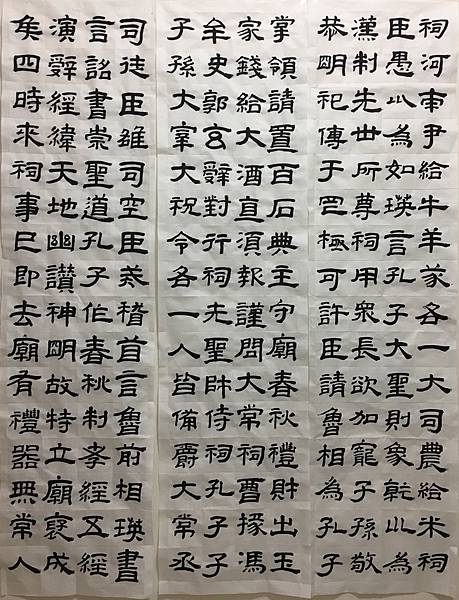 司徒臣雄司空臣戒稽首言魯前相瑛書
言詔書崇聖道孔子作春秋制孝經五經
演辭經緯天地幽讚神明故特立廟褒成
矦四時來祠事已即去廟有禮器無常人
掌領請置百石典主守廟春秋禮財出王
家錢給大酒直須報謹問大常祠曹掾馮
牟史郭玄辭對行祠先聖師侍祠孔子子
子孫大宰大祝令各一人皆備爵大常丞
祠河南尹給牛羊豕各一大司農給米祠
臣愚以為如瑛言孔子大聖則象乾以為
漢制先世所尊祠用眾長欲加寵子孫敬
恭明祀傳于罔極可許臣請魯相為孔子